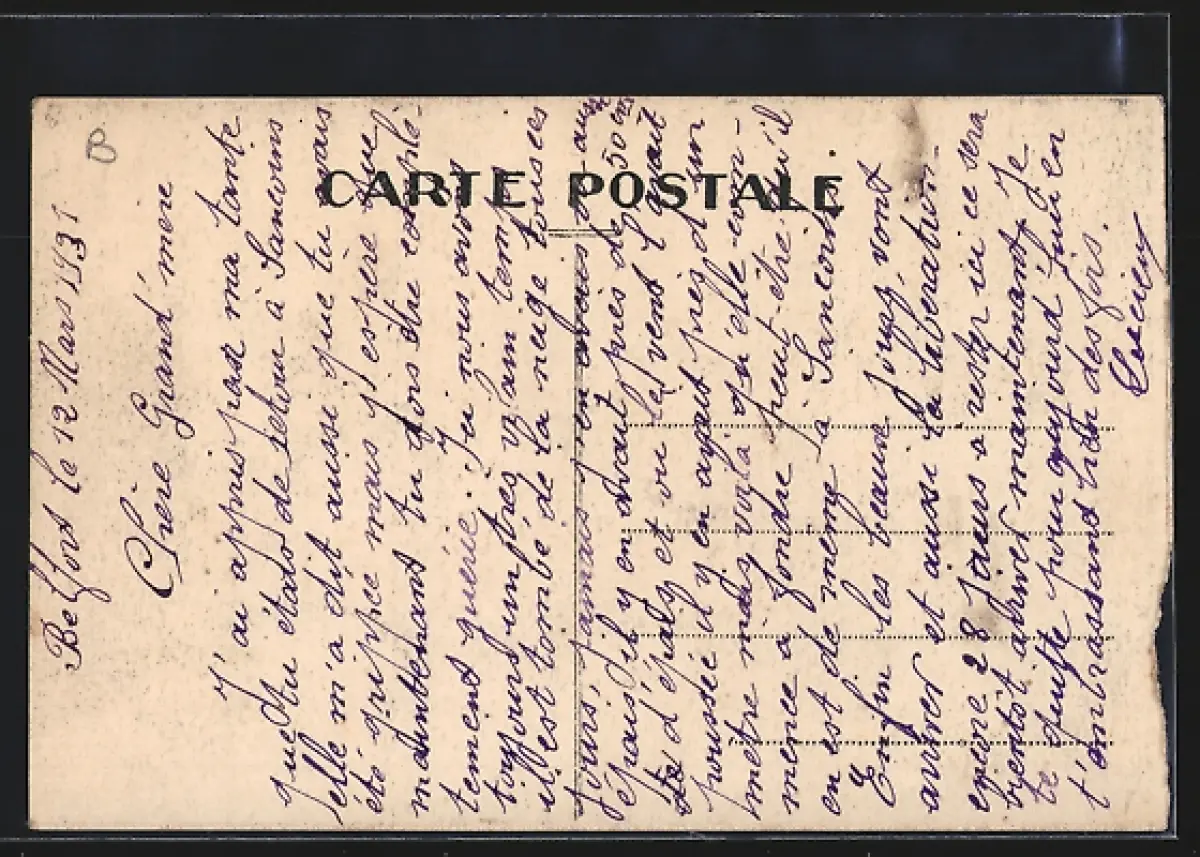 CARTE POSTALE
Belfort le 12 Mars 1931
Chère Grand'mère
J'ai appris par ma tante
que tu étais de retour à Sancoins
elle m'a dit aussi que tu avais
été grippé mais j'espère que
maintenant tu dois être complè-
tement guérie. Ici nous avons
toujours un très vilain temps
il est tombé de la neige tous ces
jours, jamais j'en avais vu aussi
épais, il y en avait près de 50 cm
d'épais, et ou le vent l'avait
poussée il y en avait près d'un
mètre mais voilà qu'elle com-
mence a fondre peut-être qu'il
en est de même à Sancoins.
Enfin les beaux jours vont
arriver et aussi la libération
encore 28 jours a rester ici ce sera
bientôt arriver maintenant. Je
te quitte pour aujourd'hui en
t'embrassant bien des fois.
Lucien